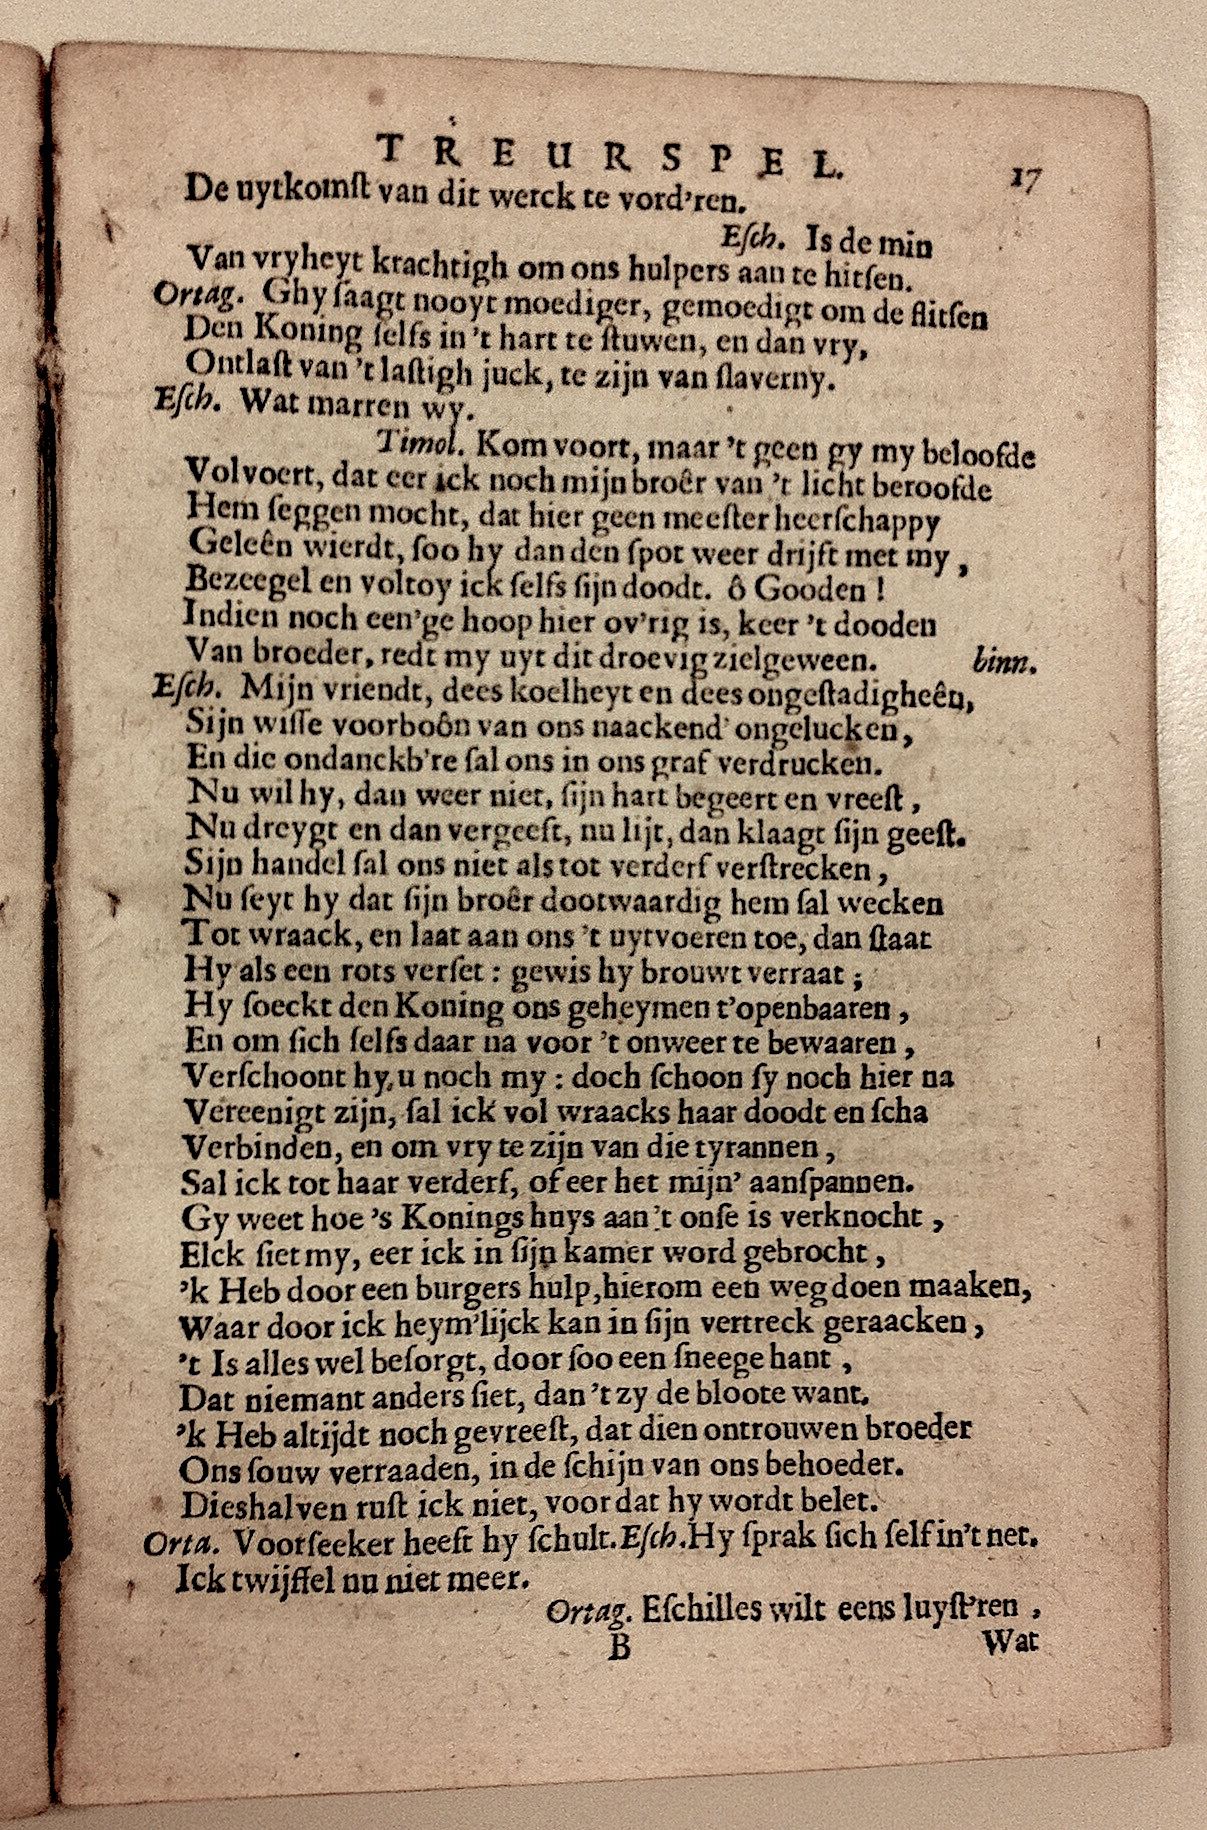 TREURSPEL. 17
De uytkomſt van dit werck te vord'ren.
Eſch. Is de min
Van vryheyt krachtigh om ons hulpers aan te hitſen.
Ortag. Ghy ſaagt nooyt moediger, gemoedigt om de flitſen
Den Koning ſelfs in 't hart te ſtuwen, en dan vry,
Ontlaſt van 't laſtigh juck, te zijn van ſlaverny.
Eſch. Wat marren wy.
Timol. Kom voort, maar 't geen gy my beloofde
Volvoert, dat eer ick noch mijn broêr van 't licht beroofde
Hem ſeggen mocht, dat hier geen meeſter heerſchappy
Geleên wierdt, ſoo hy dan den ſpot weer drijft met my,
Bezeegel en voltoy ick ſelfs ſijn doodt. ô Gooden!
Indien noch een'ge hoop hier ov'rig is, keer 't dooden
Van broeder, redt my uyt dit droevig zielgeween. binn.
Eſch. Mijn vriendt, dees koelheyt en dees ongeſtadigheên,
Sijn wiſſe voorboôn van ons naackend' ongelucken,
En die ondanckb're ſal ons in ons graf verdrucken.
Nu wil hy, dan weer niet, ſijn hart begeert en vreeſt,
Nu dreygt en dan vergeeft, nu lijt, dan klaagt ſijn geeſt.
Sijn handel ſal ons niet als tot verderf verſtrecken,
Nu ſeyt hy dat ſijn broêr dootwaardig hem ſal wecken
Tot wraack, en laat aan ons 't uytvoeren toe, dan ſtaat
Hy als een rots verſet: gewis hy brouwt verraat;
Hy ſoeckt den Koning ons geheymen t'openbaaren,
En om ſich ſelfs daar na voor 't onweer te bewaaren,
Verſchoont hy u noch my: doch ſchoon ſy noch hier na
Vereenigt zijn, ſal ick vol wraacks haar doodt en ſcha
Verbinden, en om vry te zijn van die tyrannen,
Sal ick tot haar verderf, of eer het mijn' aanſpannen.
Gy weet hoe 's Konings huys aan 't onſe is verknocht,
Elck ſiet my, eer ick in ſijn kamer word gebrocht,
'k Heb door een burgers hulp, hierom een weg doen maaken,
Waar door ick heym'lijck kan in ſijn vertreck geraacken,
't Is alles wel beſorgt, door ſoo een ſneege hant,
Dat niemant anders ſiet, dan 't zy de bloote want.
'k Heb altijdt noch gevreeſt, dat dien ontrouwen broeder
Ons ſouw verraaden, in de ſchijn van ons behoeder.
Dieshalven ruſt ick niet, voor dat hy wordt belet.
Orta. Voorſeeker heeft hy ſchult. Eſch. Hy ſprak ſich ſelf in't net.
Ick twijffel nu niet meer.
Ortag. Eſchilles wilt eens luyſt'ren,
B Wat